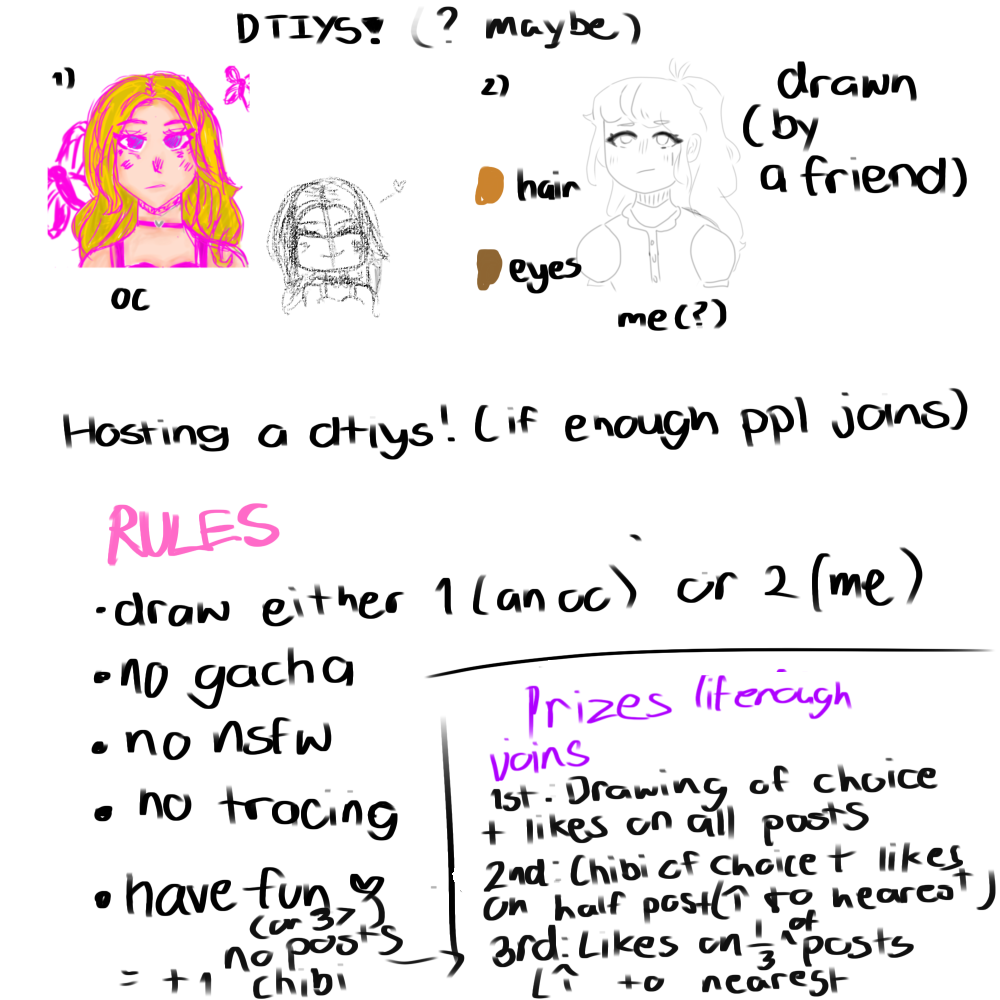 DTIYS! (? maybe)
1)
2)
drawn
(by
a friend)
hair
eyes
OC
me(?)
Hosting a dtiys! (if enough ppl joins)
RULES
• draw either 1 (an oc) or 2 (me)
• no gacha
• no nsfw
• no tracing
• have fun
(or 3>
no posts
= +1 chibi
Prizes (if enough
joins
1st: Drawing of choice
+ likes on all posts
2nd: Chibi of choice + likes
on half post(↑ to nearest)
3rd: Likes on 1/3 of posts
(↑ to nearest